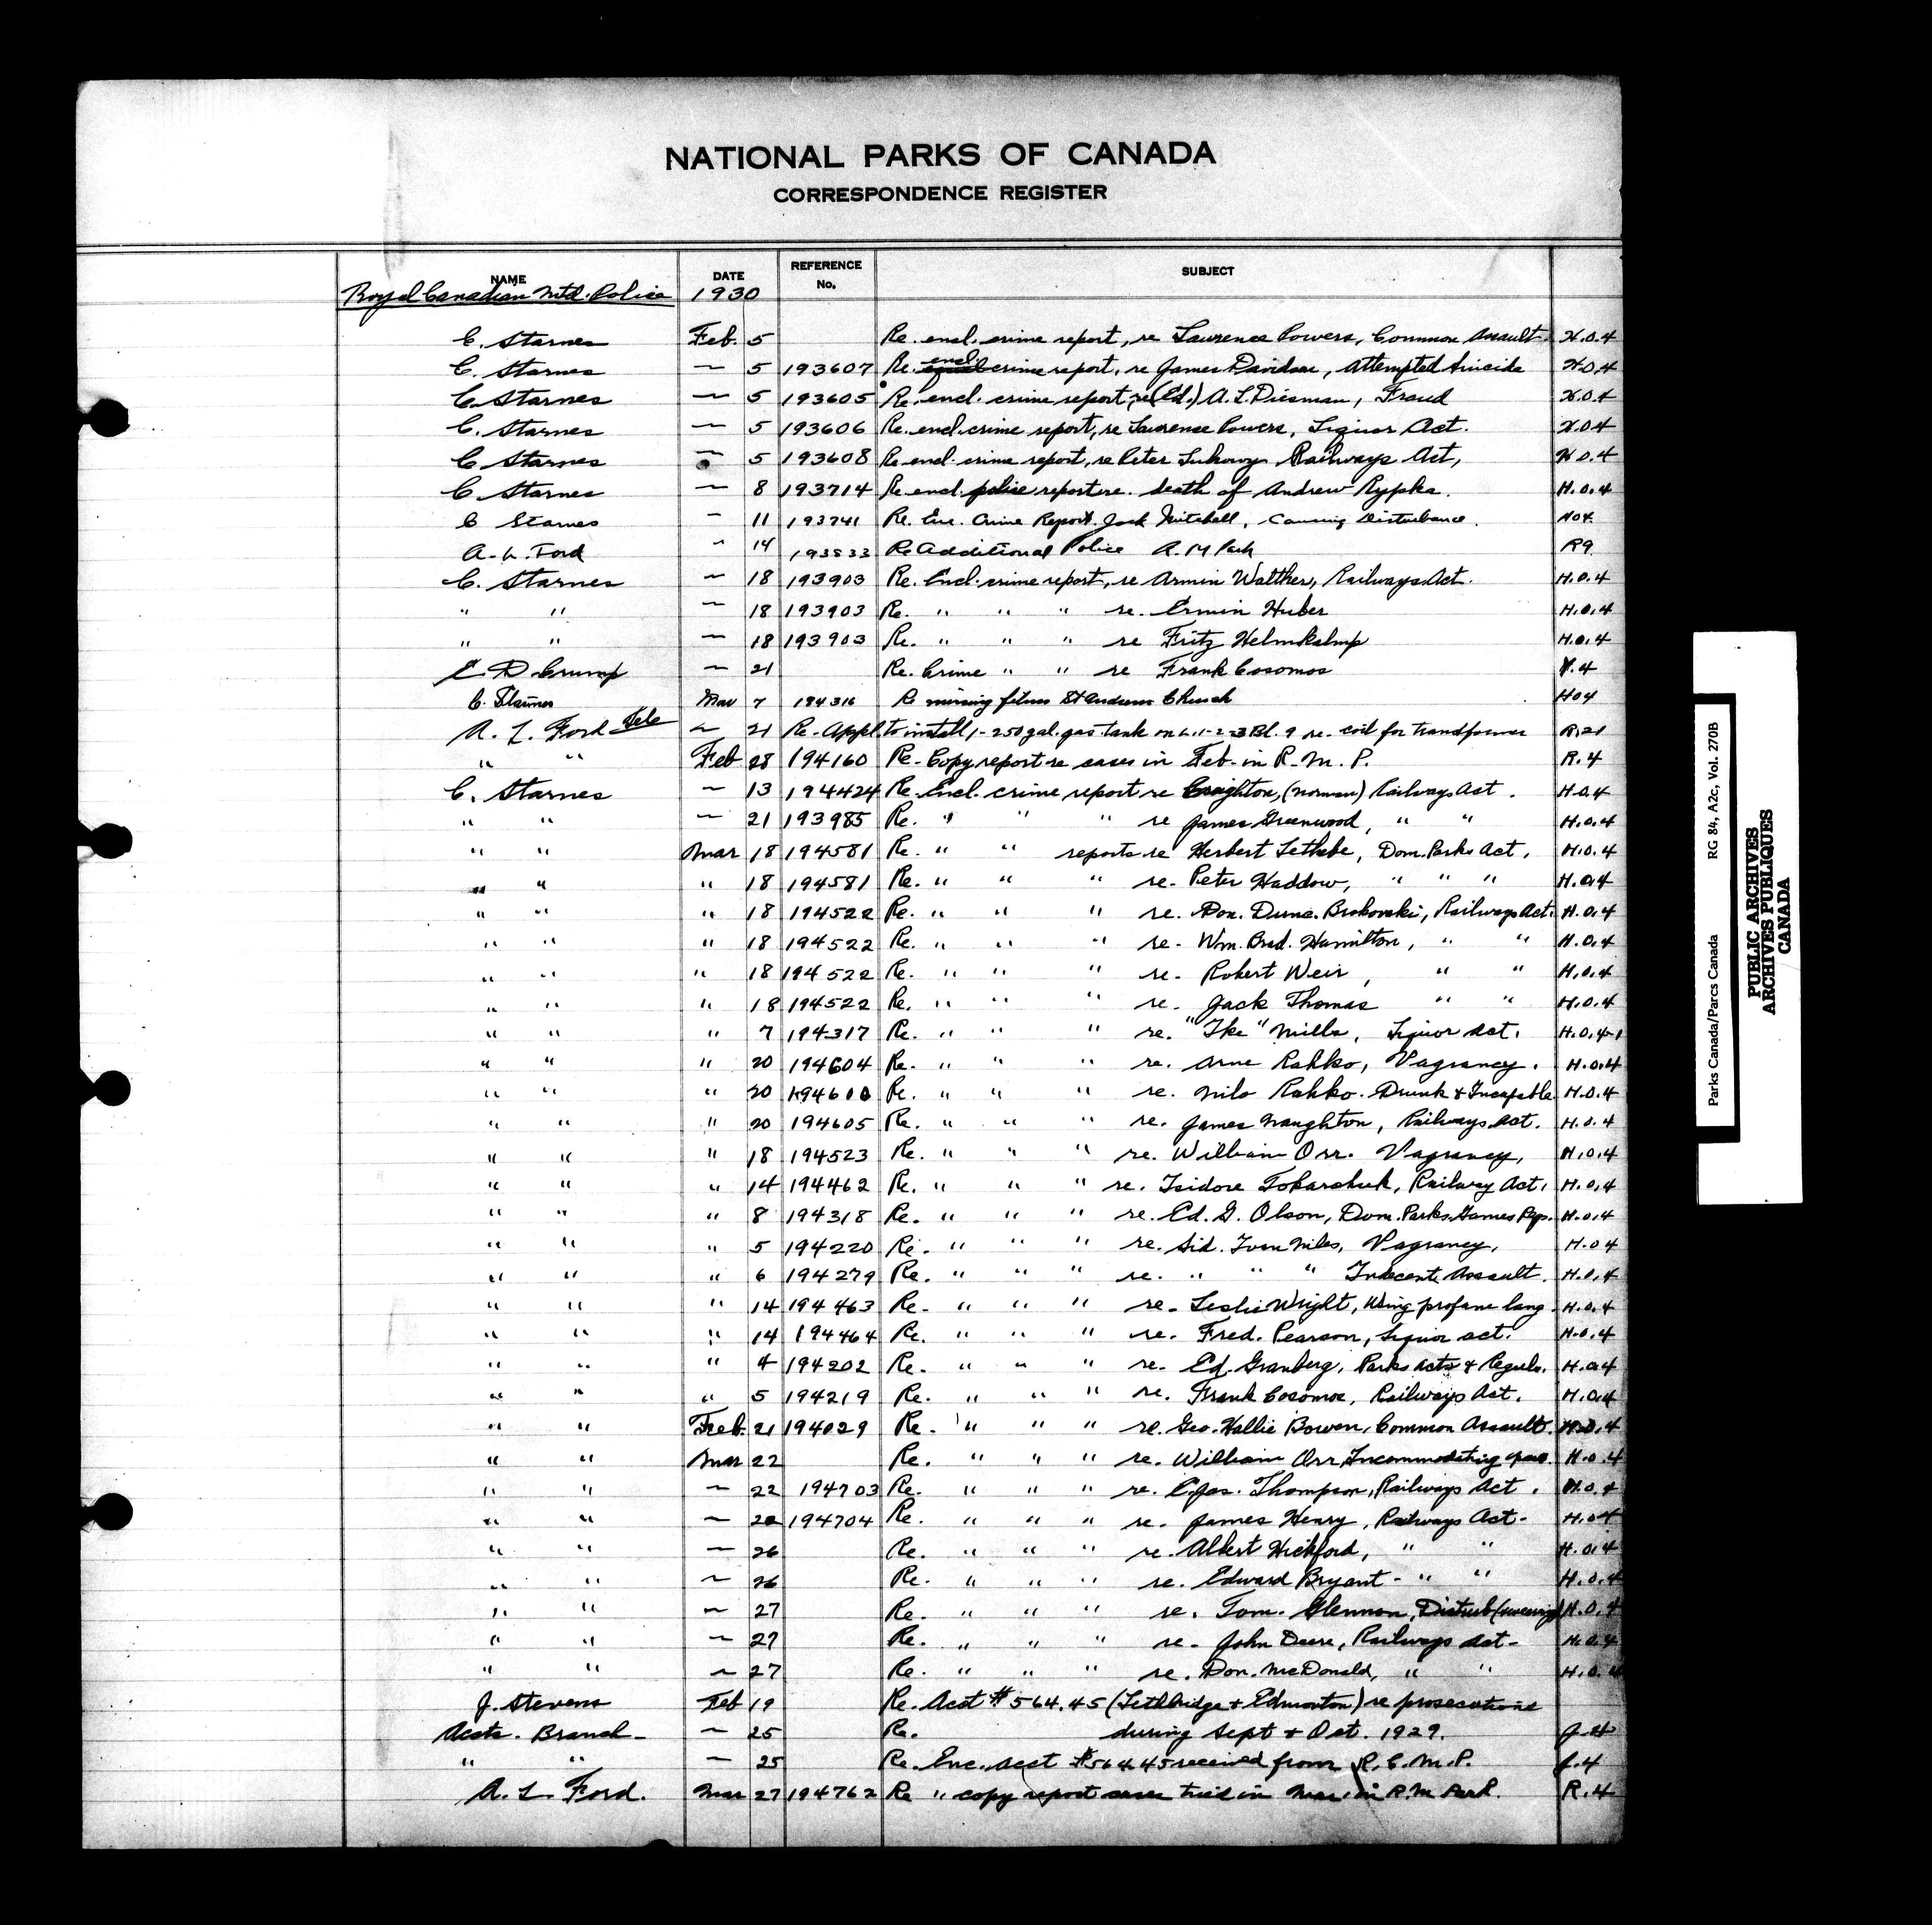 NATIONAL PARKS OF CANADA
CORRESPONDENCE REGISTER
NAME DATE REFERENCE No. SUBJECT
Royal Canadian Mtd. Police 1930
C. Starnes Feb. 5 Re. encl. crime report, re Lawrence Powers, Common Assault. H.O.4
C. Starnes — 5 193607 Re. encl. crime report, re James Davidson, Attempted Suicide H.O.4
C. Starnes — 5 193605 Re. encl. crime report, re (Ed.) A. L. Diesman, Fraud H.O.4
C. Starnes — 5 193606 Re. encl. crime report, re Lawrence Powers, Liquor Act. H.O.4
C. Starnes — 5 193608 Re encl. crime report, re Peter Railways Act, H.O.4
C. Starnes — 8 193714 Re. encl. police report re. death of Andrew Rypka. H.O.4
C Starnes — 11 193741 Re. Enc. Crime Report. Jack Mitchell, Causing Disturbance. HO4.
A. L. Ford " 14 193833 Re Additional Police R. M Park R9
C. Starnes — 18 193903 Re. Encl. crime report, re Armin Walther, Railways Act. H.O.4
" " — 18 193903 Re. " " " re. Ermin Huber H.O.4
" " — 18 193903 Re. " " " re Fritz H.O.4
E. D. Crump — 21 Re. Crime " " re Frank Cosomos Y.4
C. Starnes Mar 7 194316 Re missing St Andrews Church HO4
A. L. Ford — 21 Re. Appl. to install 1-250 gal. gas tank on L.1-2-3 Bl. 9 re. coil for transformer R.21
" " Feb 28 194160 Re. Copy report re cases in Feb. in R. M. P. R.4
C. Starnes — 13 194424 Re. Encl. crime report re Creighton, (Norman) Railways Act. H.O.4
" " — 21 193985 Re. " " " re James Greenwood, " " H.O.4
" " Mar 18 194581 Re. " " reports re Herbert Lethebe, Dom. Parks Act, H.O.4
" " " 18 194581 Re. " " " re. Peter Haddow, " " " H.O.4
" " " 18 194522 Re. " " " re. Don. Dunc. Brokovski, Railways Act. H.O.4
" " " 18 194522 Re. " " " re. Wm. Brad. Hamilton, " " H.O.4
" " " 18 194522 Re. " " " re. Robert Weir, " " H.O.4
" " " 18 194522 Re. " " " re. Jack Thomas " " H.O.4
" " " 7 194317 Re. " " " re. "Ike" Mills, Liquor Act. H.O.4-1
" " " 20 194604 Re. " " " re. Arne Rahko, Vagrancy. H.O.4
" " " 20 Re. " " " re. Nilo Rahko. Drunk & Incapable. H.O.4
" " " 20 194605 Re. " " " re. James Naughton, Railways Act. H.O.4
" " " 18 194523 Re. " " " re. William Orr. Vagrancy, H.O.4
" " " 14 194462 Re. " " " re. Isidore Tokarchuk, Railway Act, H.O.4
" " " 8 194318 Re. " " " re. Ed. G. Olson, Dom. Parks Games Regs. H.O.4
" " " 5 194220 Re. " " " re. Sid. Ivan Miles, Vagrancy, H.O4
" " " 6 194279 Re. " " " re. " " " Indecent Assault. H.O.4
" " " 14 194463 Re. " " " re. Leslie Wright, Using profane lang. H.O.4
" " " 14 194464 Re. " " " re. Fred. Pearson, Liquor act. H.O.4
" " " 4 194202 Re. " " " re. Ed. Granberg, Parks Acts & Reguls. H.O.4
" " " 5 194219 Re. " " " re. Frank Cosomos, Railways Act. H.O.4
" " Feb. 21 194029 Re. " " " re. Geo. Hallie Bowen, Common Assault. H.O.4
" " Mar 22 Re. " " " re. William Orr, Incommoditing H.O.4
" " — 22 194703 Re. " " " re. Thompson, Railways Act. H.O.4
" " — 22 194704 Re. " " " re. James Henry, Railways Act. H.O4
" " — 26 Re. " " " re. Albert Hickford, " " H.O.4
" " — 26 Re. " " " re. Edward Bryant - " " H.O.4
" " — 27 Re. " " " re. Tom. Glennon, Disturb (swearing) H.O.4
" " — 27 Re. " " " re. John Deere, Railways Act. H.O.4
" " — 27 Re. " " " re. Don. McDonald, " " H.O.4
J. Stevens Feb 19 Re. Acct # 564.45 (Lethbridge & Edmonton) re prosecutions
Accts. Branch — 25 Re. during Sept & Oct. 1929. J.4
" " — 25 Re. Enc. acct $564.45 received from R. C. M. P. J.4
A. L. Ford. Mar 27 194762 Re " copy report cases tried in Mar. in R. M. Park. R.4
Parks Canada/Parcs Canada RG 84, A2c, Vol. 270B
PUBLIC ARCHIVES
ARCHIVES PUBLIQUES
CANADA